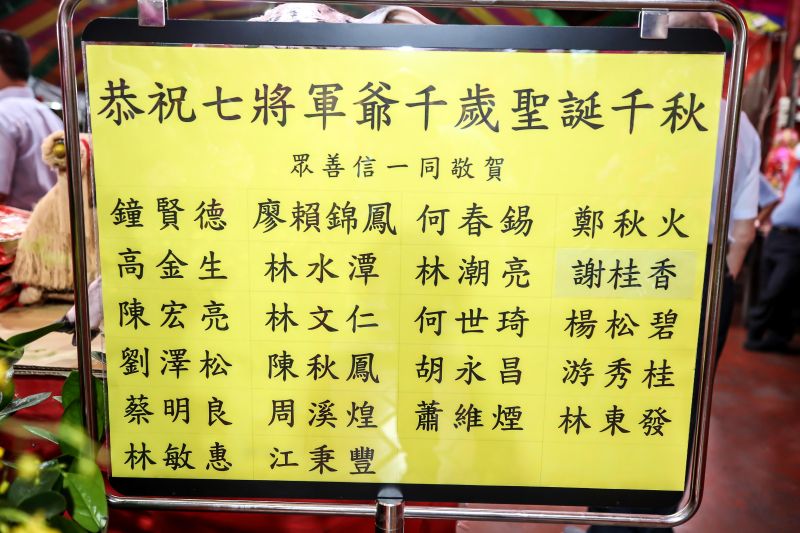 恭祝七將軍爺千歲聖誕千秋
眾善信一同敬賀
鐘賢德 廖賴錦鳳 何春錫 鄭秋火
高金生 林水潭 林潮亮 謝桂香
陳宏亮 林文仁 何世琦 楊松碧
劉澤松 陳秋鳳 胡永昌 游秀桂
蔡明良 周溪煌 蕭維煙 林東發
林敏惠 江秉豐